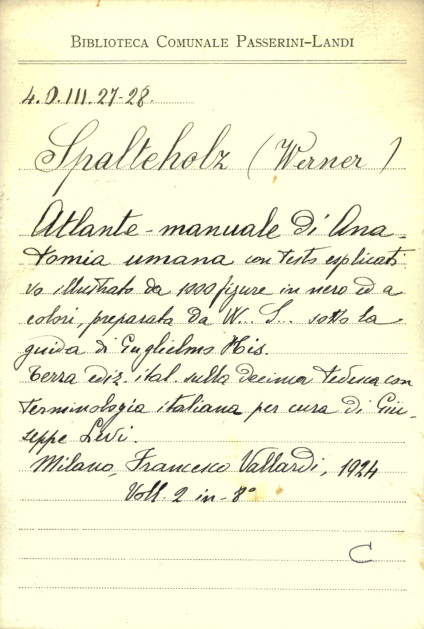 BIBLIOTECA COMUNALE PASSERINI-LANDI
4.O.III.27-28.
Spalteholz (Werner)
Atlante-manuale di Ana-
tomia umana con testo esplicati
vo illustrato da 1000 figure in nero ed a
colori, preparata da W.. S.. sotto la
guida di Guglielmo His.
Terza ediz. ital. sulla decima tedesca con
terminologia italiana per cura di Giu-
seppe Levi.
Milano, Francesco Vallardi, 1924
Voll. 2 in-8°
C